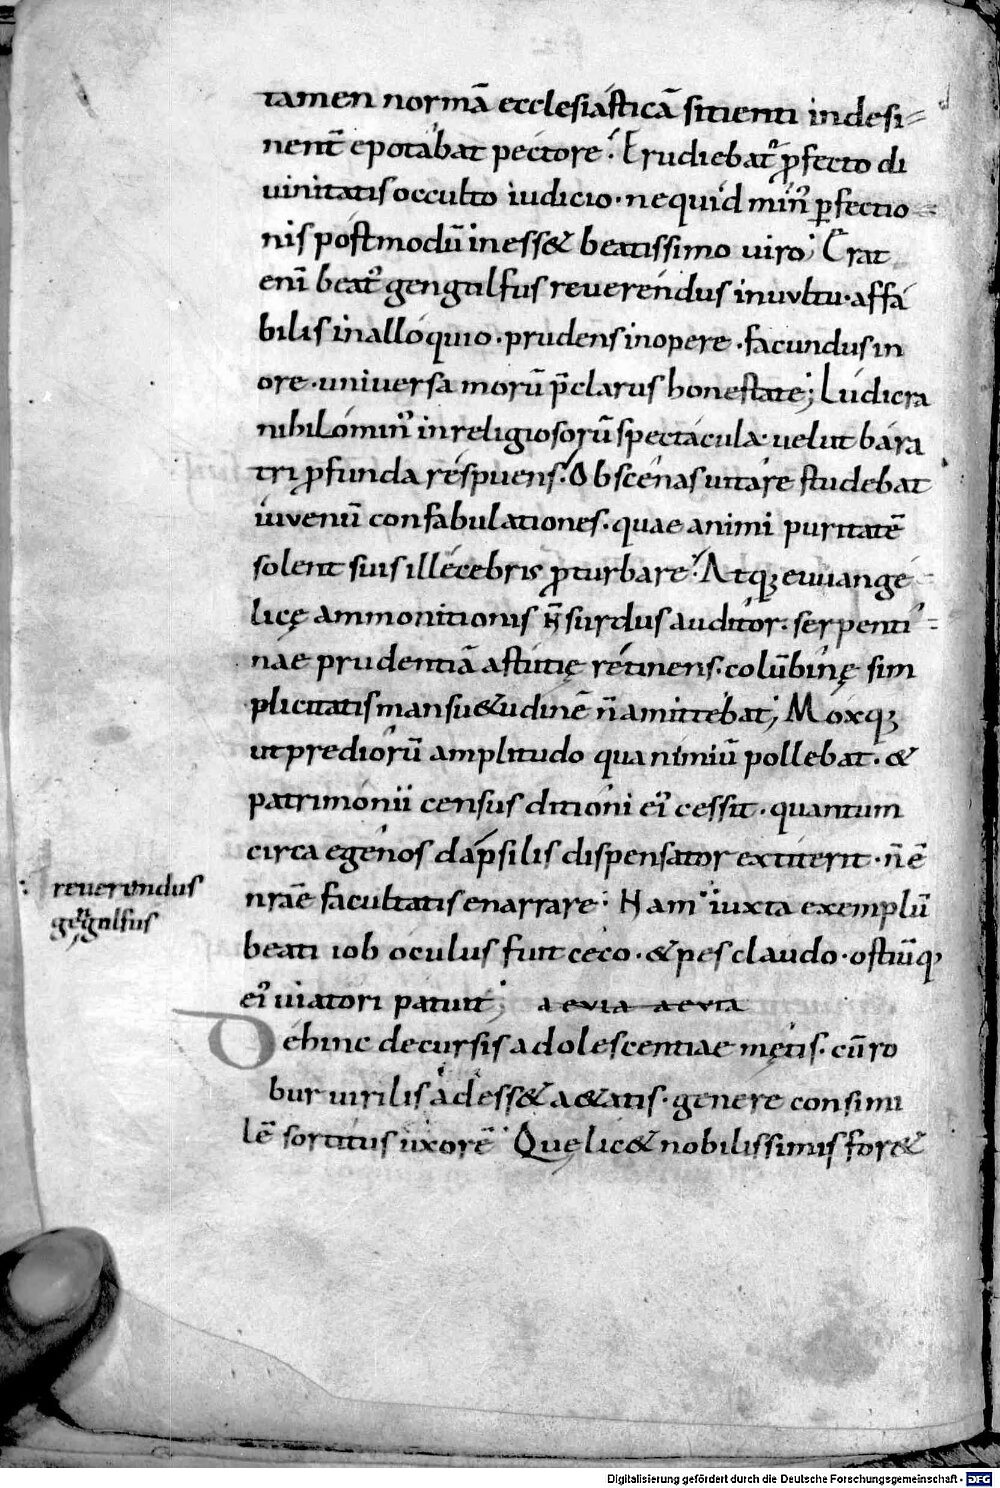 tamen normā ecclesiasticā sitienti indesi-
nent̄ epotabat pectore. Erudiebat᷑ ꝓfecto di
uinitatis occulto iudicio. nequid min᷒ ꝑfectio-
nis postmodū iness& beatissimo uiro; Erat
eni̅ beat᷒ gengulfus reuerendus inuultu. affa
bilis inalloquio. prudens inopere. facundus in
ore. uniuersa morū p̄clarus honestate; Ludicra
nihilomin᷒ inreligiosorū spectacula. uelut bara
tri ꝓfunda respuens. Obscenas uitare studebat
iuuenū confabulationes. quae animi puritatē
solent suis illecebris ꝓturbare. Atq; euuange-
licę ammonitionis ñ surdus auditor. serpenti-
nae prudentiā astutię retinens. colūbinę sim
plicitatis mansu&udinē n̄ amittebat; Moxq;
ut prediorū amplitudo qua nimiū pollebat. &
patrimonii census ditioni ei᷒ cessit. quantum
circa egenos dapsilis dispensator extiterit. n̄ ē
nr̄ae facultatis enarrare. Nam iuxta exemplū
beati iob oculus fuit ceco. & pes claudo. ostiūq;
ei᷒ uiatori patuit; aeuia aeuia
Dehinc decursis adolescentiae mętis. cū ro
bur uirilis adess& a&atis. genere consimi
lē sortitus uxorē. Quę lic& nobilissimis for&
reuerendus
gengulfus
Digitalisierung gefördert durch die Deutsche Forschungsgemeinschaft - DFG